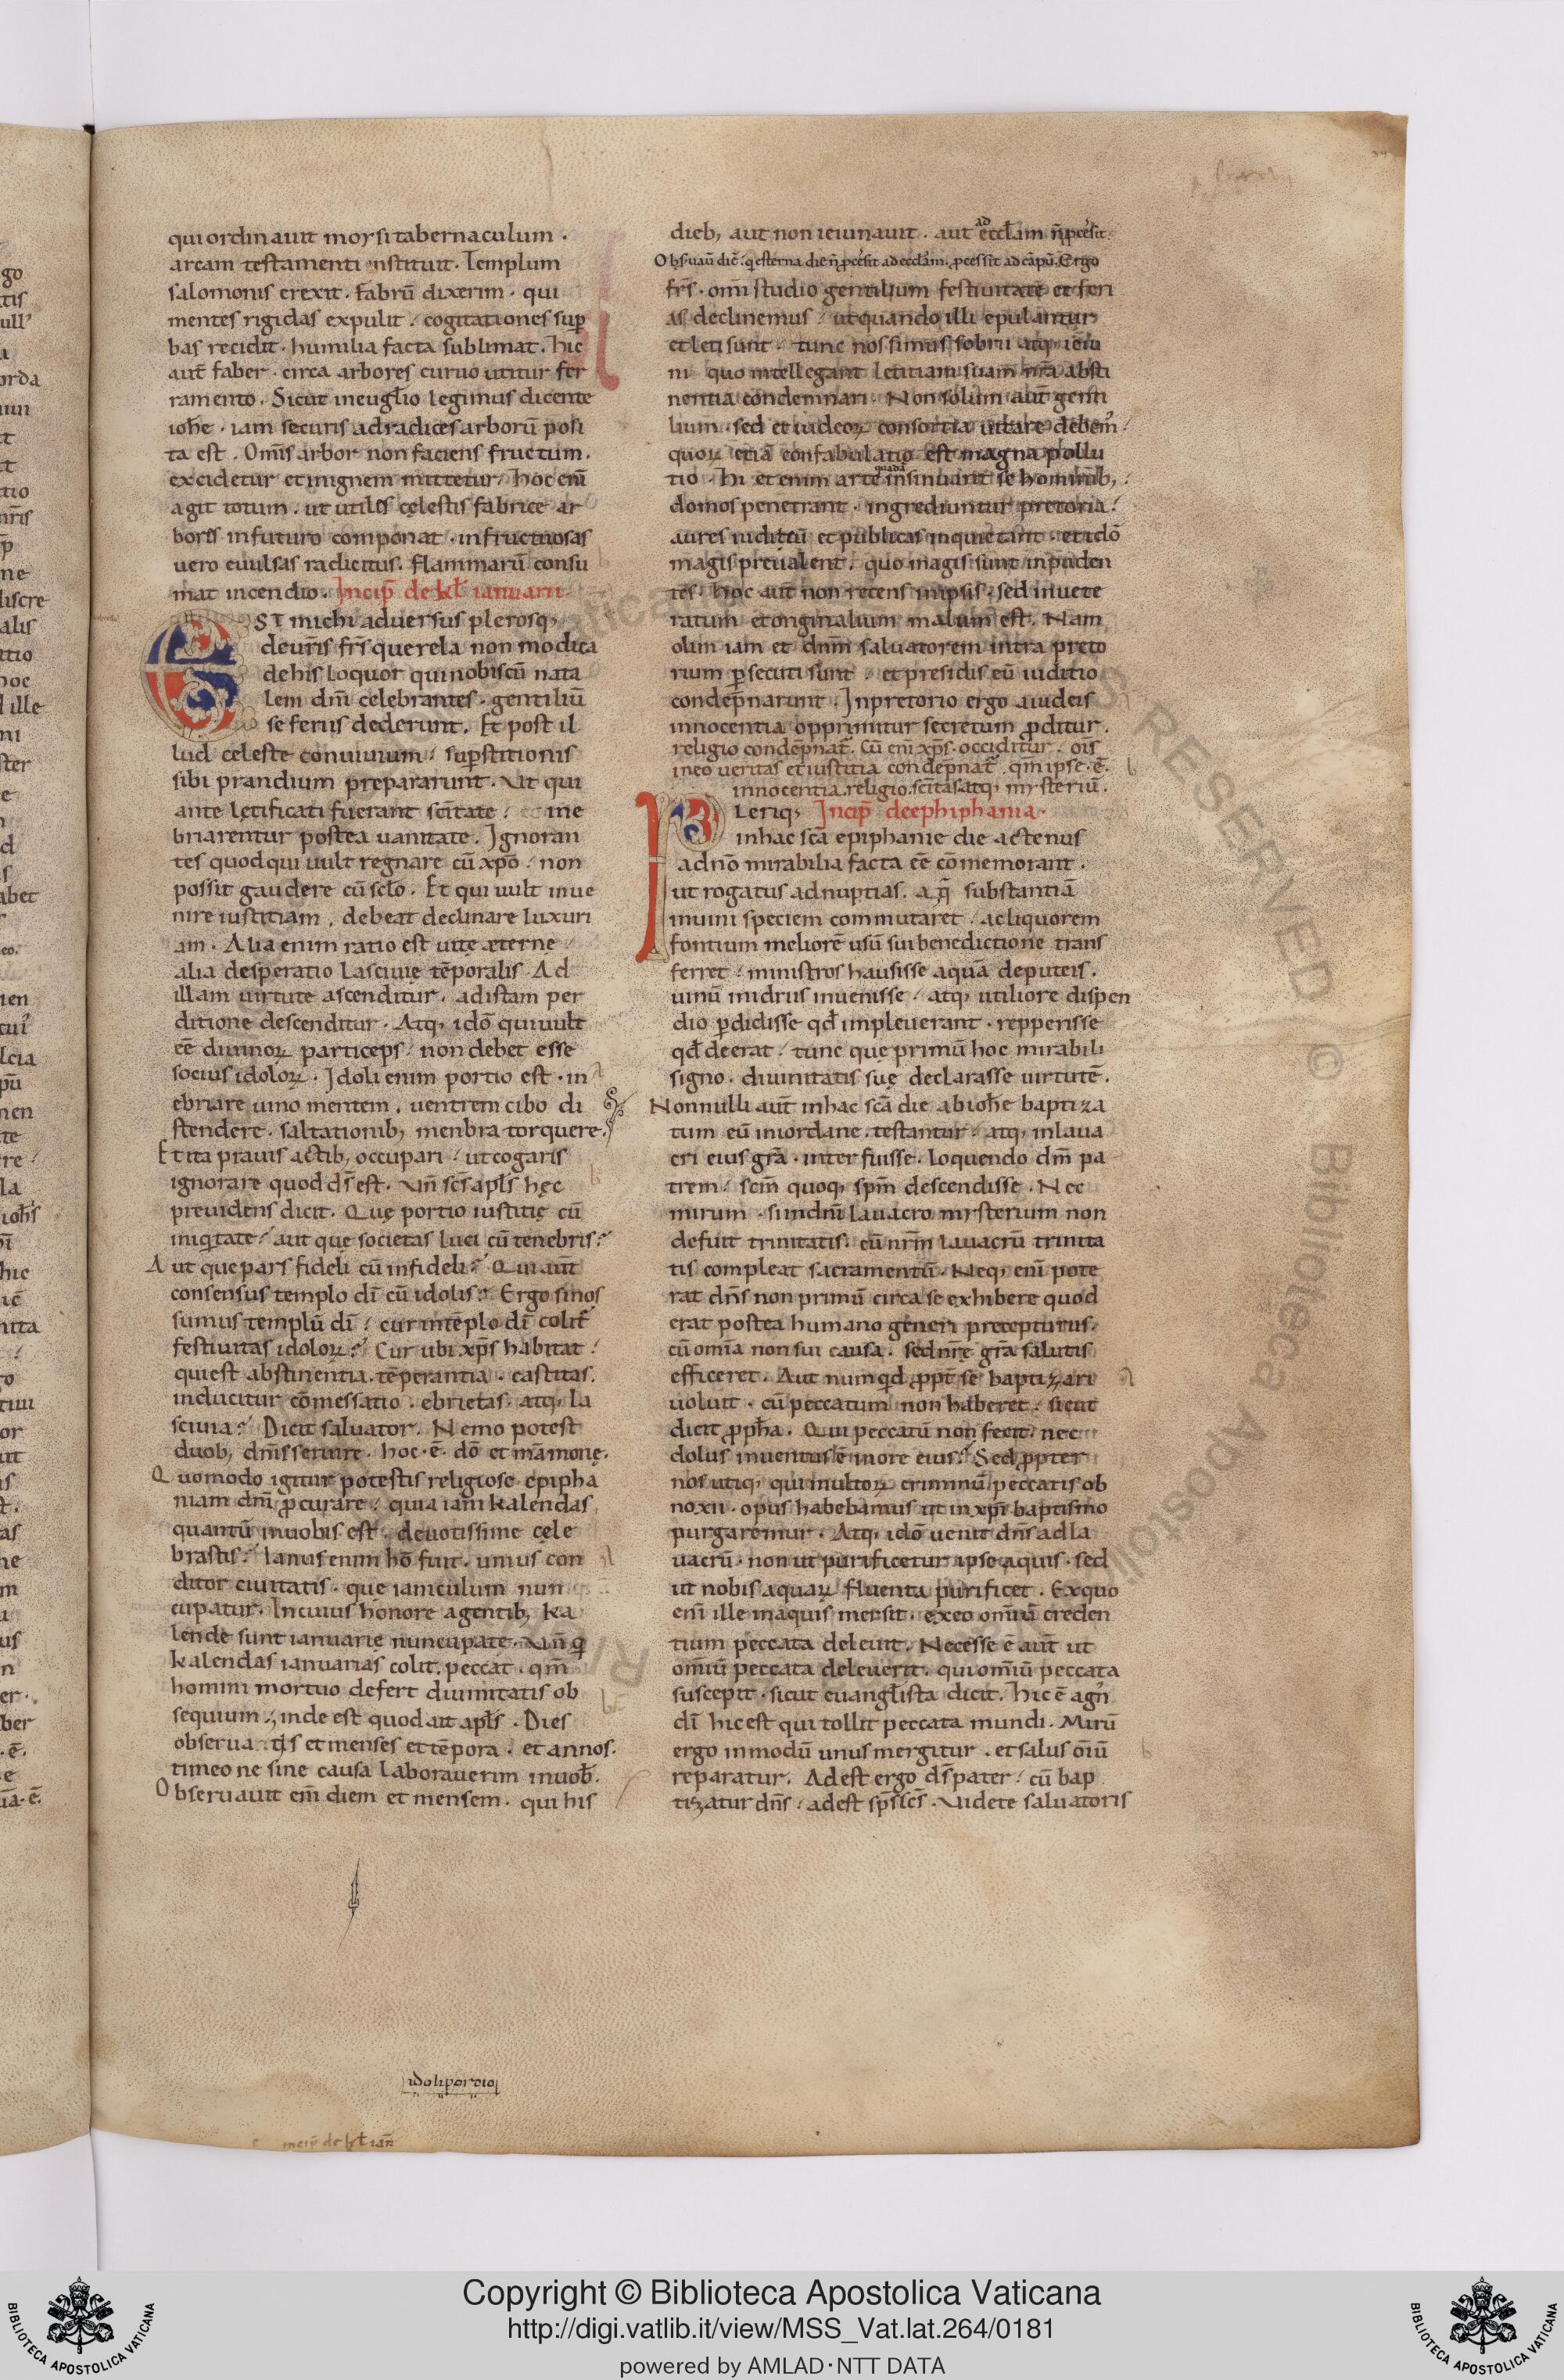 qui ordinauit moysi tabernaculum .
arcam testamenti instituit. Templum
salomonis erexit . fabrū dixerim . qui
mentes rigidas expulit . cogitationes sup
bas recidit . humilia facta sublimat . hic
aut̄ faber . circa arbores curuo utitur fer
ramento . Sicut in euḡlio legimus dicente
ioh̄e . iam securis ad radices arborū posi
ta est . Om̄is arbor non faciens fructum .
excidetur et in ignem mittetur . hoc eni
agit totum . ut utiles cęlestis fabrice ar
bores in futuro componat . infructuosas
uero euulsas radicitus . flammarū consu
mat incendio . Incip̄ de kl̄ ianuarii
EST michi aduersus plerosq;
de ur̄is fr̄s querela non modica
de his loquor qui nobiscū nata
lem dn̄i celebrantes . gentiliū
se feriis dederunt . Et post il
lud celeste conuiuium . supstitionis
sibi prandium prepararunt . Vt qui
ante lętificati fuerant sc̄itate . ine
briarentur postea uanitate . Ignoran
tes quod qui uult regnare cū xp̄o . non
possit gaudere cū sc̄lo . Et qui uult inue
nire iustitiam . debeat declinare luxuri
am . Alia enim ratio est uitę æterne
alia desperatio lasciuię tēporalis . Ad
illam uirtute ascenditur . ad istam per
ditione descenditur . Atq; idō qui uult
eē diuinoꝝ particeps . non debet esse
socius idoloꝝ . Idoli enim portio est . in
ebriare uino mentem . uentrem cibo di
stendere . saltationib; menbra torquere .
Et ita prauis actib; occupari . ut cogaris
ignorare quod d̄s est . Vn̄ sc̄s apl̄s hęc
preuidens dicit . Quę portio iustitię cū
iniq̇tate . aut quę societas luci cū tenebris .
Aut que pars fideli cū infideli . Qui aut̄
consensus templo dī cū idolis . Ergo si nos
sumus templū dī . cur in tēplo dī colit̄
festiuitas idoloꝝ . Cur ubi xp̄s habitat .
qui est abstinentia . tēperantia . castitas .
inducitur cōmessatio . ebrietas . atq; la
sciuia . Dicit saluator . Nemo potest
duob; dn̄is seruire . hoc . ē . dō et māmonę .
Quomodo igitur potestis religiose epipha
niam dn̄i p̱curare . quia iam kalendas
quantū in uobis est . deuotissime cęle
brastis . Ianus enim hō fuit . unius con
ditor ciuitatis . que ianiculum nun
cupatur . In cuius honore agentib; ka
lende sunt ianuarie nuncupate . Vn̄ q̇
kalendas ianuarias colit . peccat . qm̄
homini mortuo defert diuinitatis ob
sequium . inde est quod ait apl̄s . Dies
obserua tis et menses et tēpora . et annos .
timeo ne sine causa laborauerim in uob̄ .
Obseruauit em̄ diem et mensem . qui his
dieb; aut non ieiunauit . aut ad eccl̄am n̄ p̱cessit .
Ergo
fr̄s . omi studio gentilium festiuitatē et feri
as declinemus . ut quando illi epulantur
et leti sunt . tunc nos simus sobrii atq; ieiu
ni quo intellegant letitiam suam nr̄a absti
nentia condemnari . Non solum aut̄ genti
lium . sed et iudeoꝝ consortia uitare debem̄ .
quoꝝ etiā confabulatio est magna pollu
tio . Hi et enim arte quadā insinuant se hominib;
domos penetrant . ingrediuntur pretoria .
aures iudicū et publicas inquietant . et idō
magis preualent . quo magis sunt inpuden
tes . hoc aut̄ non recens in ipsis . sed inuete
ratum et originalium malum est . Nam
olim iam et dn̄m saluatorem intra preto
rium p̱secuti sunt . et presidis eū iuditio
condēpnarunt . In pretorio ergo a iudeis
innocentia opprimitur secretum p̱ditur .
religio condēpnat̄ . Cū eni xp̄s . occiditur . oīs
in eo ueritas et iustitia condēpnat̄ . qm̄ ipse . ē .
innocentia . religio . sc̄itas atq; mysteriū .
PLeriq; Incip̄ de ephiphania .
in hac sc̄a epiphanie die actenus
a dn̄o mirabilia facta eē cōmemorant .
ut rogatus ad nuptias . aq̄ substantiā
in uini speciem commutaret . ac liquorem
fontium meliorē usū sui benedictione trans
ferret . ministros hausisse aquā de puteis .
uinū in idriis inuenisse . atq; utiliore dispen
dio p̱didisse qd̄ impleuerant . repperisse
qd̄ deerat . tunc que primū hoc mirabili
signo . diuinitatis suę declarasse uirtutē .
Nonnulli aut̄ in hac sc̄a die ab ioh̄e baptiza
tum eū in iordane . testantur . atq; in laua
cri eius grā . inter fuisse . loquendo dm̄ pa
trem . sc̄m quoq; spm̄ descendisse . Nec
mirum . si in dn̄i lauacro mysterium non
defuit trinitatis . cū nrm̄ lauacrū trinita
tis compleat sacramentū . Neq; eni pote
rat dn̄s non primū circa se exhibere quod
erat postea humano generi precepturus .
cū omīa non sui causa . sed nr̄ę grā salutis
efficeret . Aut numqid p̱pt̄ se baptizari
uoluit . cū peccatum non haberet . sicut
dicit p̱ph̄a . Qui peccatū non fecit . nec
dolus inuentus ē in ore eius . Sed p̱pter
nos utiq; qui multoꝝ criminū peccatis ob
noxii . opus habebamus ut in xp̄i baptismo
purgaremur . Atq; idō uenit dn̄s ad la
uacrū . non ut purificetur ipse aquis . sed
ut nobis aquaꝝ fluenta purificet . Ex quo
eni ille in aquis mersit . ex eo omniū creden
tium peccata deleuit . Necesse ē aut̄ ut
omiū peccata deleuerit . qui omīū peccata
suscepit . sicut euangl̄ista dicit . hic ē agn̄
dī hic est qui tollit peccata mundi . Mirū
ergo in modū unus mergitur . et salus oīū
reparatur . Adest ergo d̄s pater . cū bap
tizatur dn̄s . adest sp̄s sc̄s . Videte saluatoris
idoli portio
Copyright © Biblioteca Apostolica Vaticana
http://digi.vatlib.it/view/MSS_Vat.lat.264/0181
powered by AMLAD·NTT DATA
BIBLIOTECA APOSTOLICA VATICANA
BIBLIOTECA APOSTOLICA VATICANA